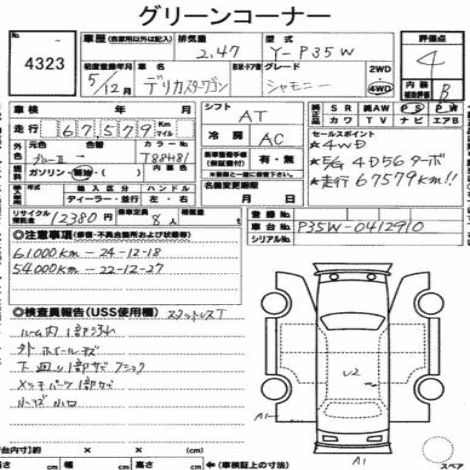 グリーンコーナー
No. 4323
車歴 (自家用以外は記入) 排気量 2.47 型式 Y-P35W 評価点 4
初度登録年月 5/12月 車名 デリカスターワゴン グレード シャモニー 2WD 4WD 内装 B
車検 年 月 シフト AT 純正品 SR 純AW PS PW
走行 67579 Km マイル 冷房 AC カワ TV ナビ エアB
外色 ブルーⅡ 色替 カラーNo. T88H81
セールスポイント
★4WD
★5G 4D56ターボ
★走行 67579km!!
燃料 ガソリン・軽油・( ) 有・無
輸入区分 ハンドル 名義変更期限
ディーラー・並行 左・右 月 日
リサイクル 12380円 乗車定員 8人 積載量 kg
登録No.
車台No. P35W-0412910
シリアルNo.
◎注意事項 (修復・不具合箇所および状態等)
61000km-24-12-18
54000km-22-12-27
◎検査員報告 (USS使用欄) スタットレスT
ルーム内1部汚れ
外ホイールキズ
下回り1部サビブラック
メッキパーツ1部サビ
小キズ小凹
U2
A1
A1
荷台内寸) 約 × × (cm)
長さ cm 幅 cm 高さ cm ←(車検証上の寸法)
スペア